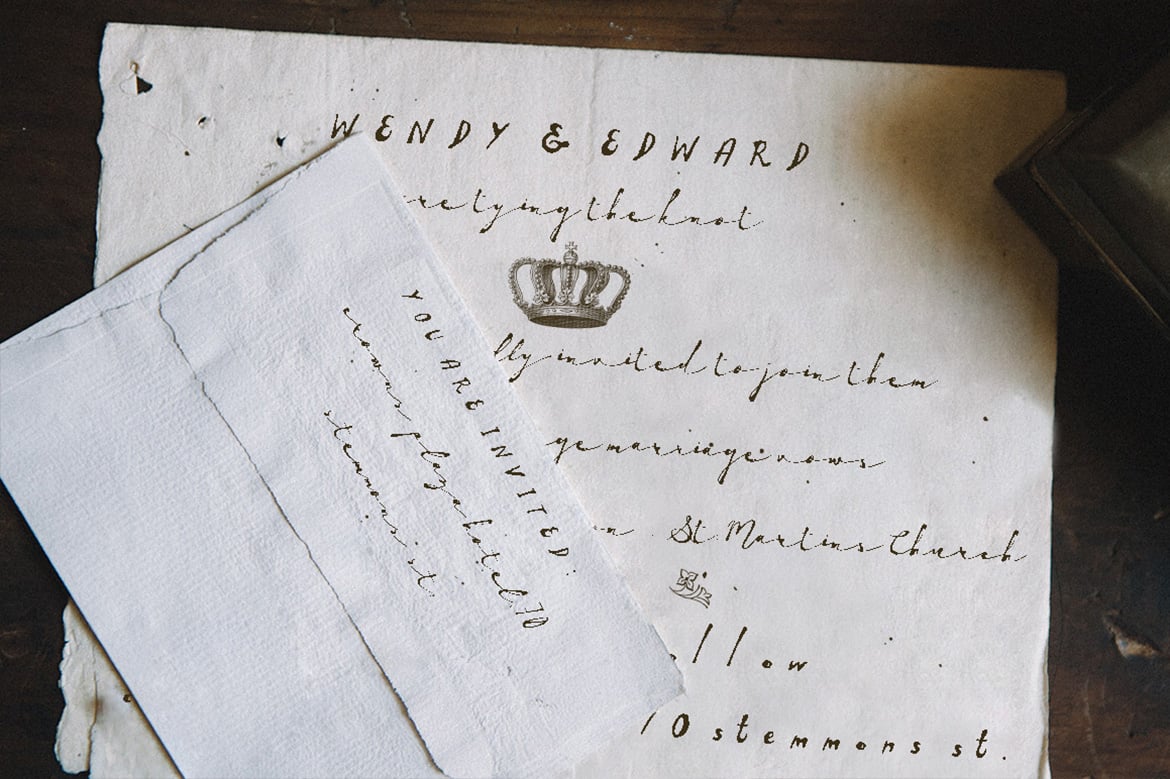 WENDY & EDWARD
re tying the knot
lly invited to join them
ge marriage vows
St Martins Church
llow
70 stemmons st.
YOU ARE INVITED
crowns plaza hotel, 70
stemmons st.